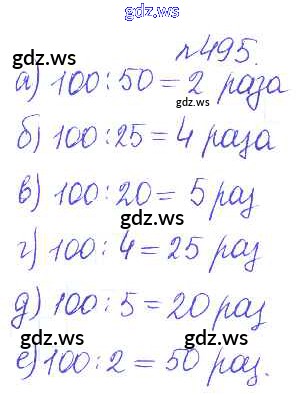 gdz.ws
gdz.ws
№495.
а) 100:50=2 раза
б) 100:25=4 раза
gdz.ws
в) 100:20= 5 раз
г) 100: 4=25 раз
gdz.ws
д) 100: 5=20 раз
gdz.ws gdz.ws
е) 100:2 = 50 раз.